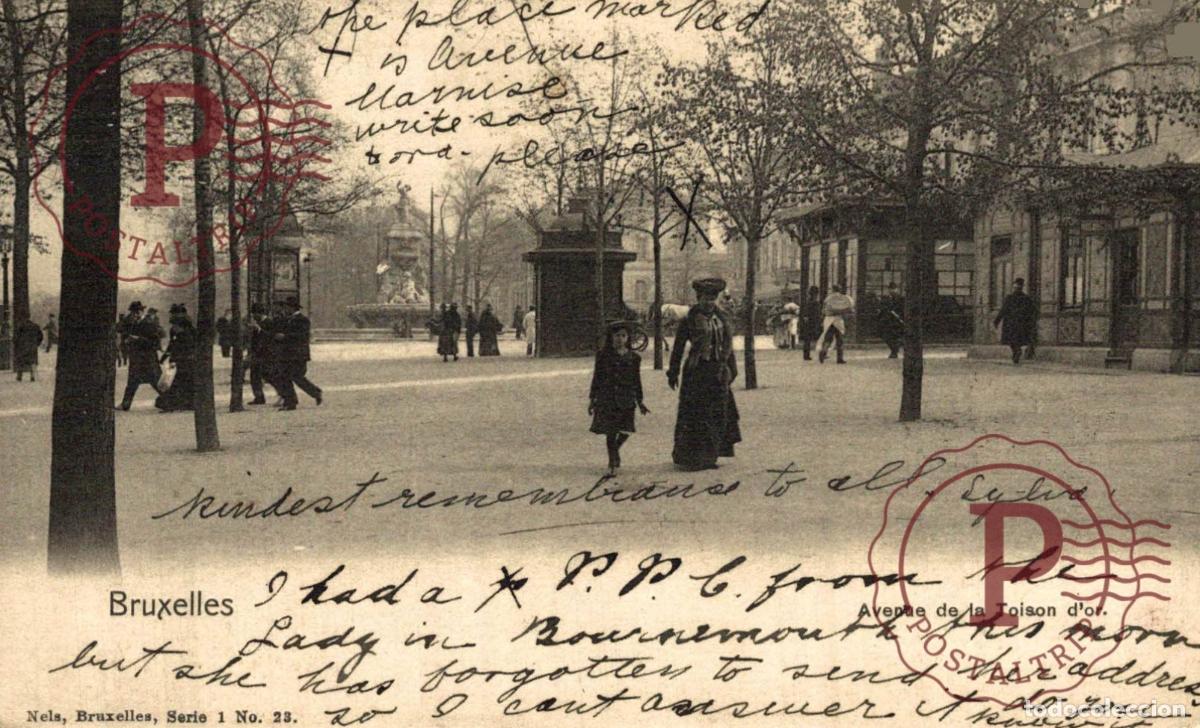 the place marked
x is Avenue
Marnise
write soon
tora. please
X
kindest remembrance to all. Sylvia.
Bruxelles
Avenue de la Toison d'or.
I had a x P. P. C. from the
Lady in Bournemouth this morn
but she has forgotten to send her address
so I cant answer it
Nels, Bruxelles, Serie 1 No. 23.
P
POSTALTRIP
P
POSTALTRIP
todocoleccion